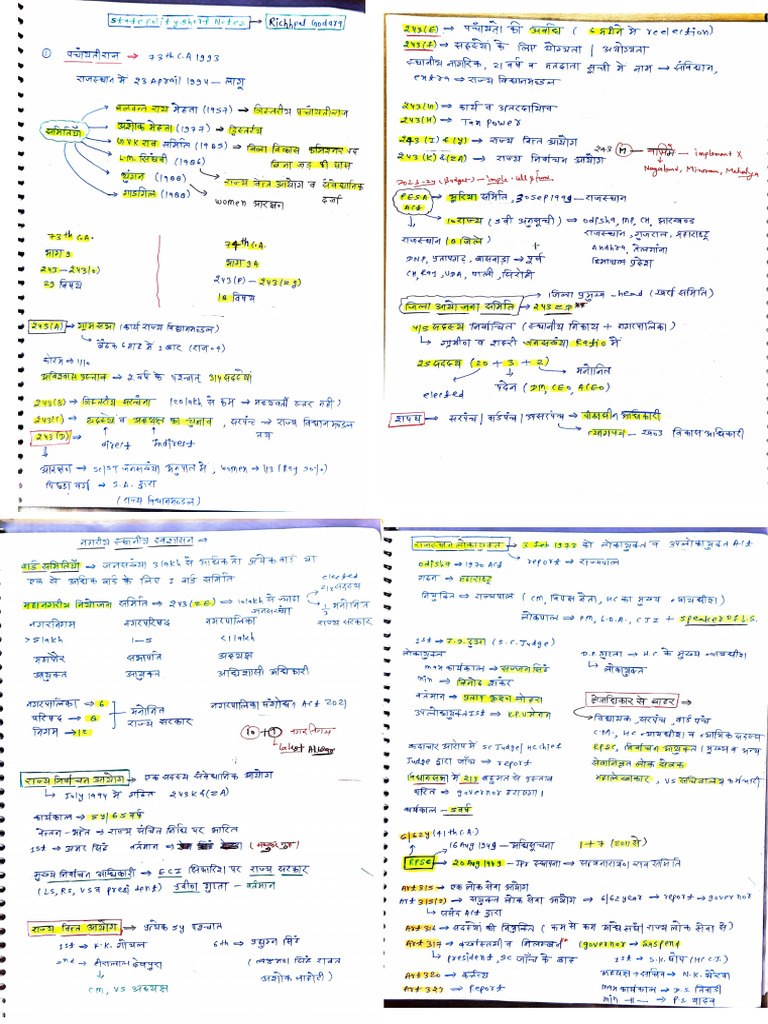 State polity short Notes → Richhpal Godara
① पंचायतीराज → 73th C.A 1993
राजस्थान में 23 April 1994 - लागू
समितियाँ
बलवन्त राय मेहता (1957) → त्रिस्तरीय पंचायतीराज
अशोक मेहता (1977) → द्विस्तरीय
G.V.K राव समिति (1985) → जिला विकास
L.M. सिंघवी (1986)
थुंगन (1988)
गाडगिल (1988)
राज्य वित आयोग व संवैधानिक दर्जा
women आरक्षण
73th C.A.
भाग 9
243-243(O)
29 विषय
74th C.A.
भाग 9A
243(P) - 243(ZG)
18 विषय
243(A) → ग्रामसभा (कार्य राज्य विधानमण्डल)
कोरम → 1/10
अविश्वास प्रस्ताव → 2 वर्ष के पश्चात् 3/4 सदस्यों
243(B) → त्रिस्तरीय संरचना (20 lakh से कम → मध्यवर्ती स्तर नहीं)
243(C) → सदस्यों व अध्यक्ष का चुनाव, सरपंच → राज्य विधानमण्डल
243(D)
direct indirect
आरक्षण → SC/ST जनसंख्या अनुपात में, women → 1/3 (Raj 50%)
पिछड़ा वर्ग → S.A. द्वारा
(राज्य विधानमण्डल)
243(E) → पंचायतों की अवधि (6 महीने में reelection)
243(F) → सदस्यों के लिए योग्यता | अयोग्यता
स्थानीय नागरिक, 21 वर्ष व मतदाता सूची में नाम → संविधान,
extra → राज्य विधानमण्डल
243(G) → कार्य व उत्तरदायित्व
243(H) → Tax Power
243 (I) & (Y) → राज्य वित आयोग
243 (K) & (ZA) → राज्य निर्वाचन आयोग
243 (M) → implement X
Nagaland, Mizoram, Meghalya
PESA Act → भूरिया समिति, 30 Sep 1999 - राजस्थान
10 राज्य (5वी अनुसूची) → Odisha, MP, CH, झारखण्ड
राजस्थान, गुजरात, महाराष्ट्र
Andhra, तेलंगाना
हिमाचल प्रदेश
राजस्थान (8 जिले)
DNP, प्रतापगढ़, बांसवाड़ा → पूर्ण
CH, Raj, UDA, पाली, सिरोही
जिला आयोजना समिति → 243 ZD
जिला प्रमुख - head
4/5 सदस्य निर्वाचित (स्थानीय निकाय + नगरपालिका)
ग्रामीण व शहरी जनसंख्या Ratio में
25 सदस्य (20 + 3 + 2)
elected
मनोनित
पदेन (DM, CEO, ACEO)
शपथ → सरपंच | वार्डपंच | उपसरपंच → पीठासीन अधिकारी
त्यागपत्र → विकास अधिकारी
नगरीय स्थानीय स्वशासन →
वार्ड समितियाँ → जनसंख्या 3 lakh से अधिक तो प्रत्येक वार्ड या
एक से अधिक वार्ड के लिए 1 वार्ड समिति
महानगरीय नियोजन समिति → 243(ZE) → 10 lakh से ज्यादा जनसंख्या
elected 2/3 सदस्य
1/3 मनोनित
राज्य सरकार
नगरनिगम नगरपरिषद नगरपालिका
>5 lakh 1-5 <1 lakh
महापौर सभापति अध्यक्ष
आयुक्त आयुक्त अधिशासी अधिकारी
नगरपालिका → 6
परिषद → 8
निगम → 12
मनोनित
राज्य सरकार
नगरपालिका संशोधन Act 2021
राज्य निर्वाचन आयोग → एक सदस्य संवैधानिक आयोग
July 1994 में गठित 243K & (ZA)
कार्यकाल → 5y/65 वर्ष
वेतन-भत्ते → राज्य संचित निधि पर भारित
1st → अमर सिंह वर्तमान →
मुख्य निर्वाचन अधिकारी → ECI सिफारिश पर राज्य सरकार
(LS, RS, VS व president) प्रवीण गुप्ता - वर्तमान
राज्य वित आयोग → प्रत्येक 5y पश्चात
1st → K.K. गोयल
2nd → हीरालाल देवपुरा
CM, VS अध्यक्ष
6th → प्रद्युम्न सिंह
अशोक लाहोटी
राजस्थान लोकायुक्त → 3 Feb 1973 को लोकायुक्त व उपलोकायुक्त Act
Odisha → 1970 Act
report → राज्यपाल
गठन → महाराष्ट्र
नियुक्ति → राज्यपाल (CM, विपक्ष नेता, HC का मुख्य न्यायाधीश)
लोकपाल → PM, L.O.A., CJI + Speaker of L.S.
1st → I.D. दुआ (S.C. Judge)
लोकायुक्त
max कार्यकाल → सज्जन सिंह
min → विनोद शंकर
वर्तमान → प्रताप कृष्ण लोहरा
उपलोकायुक्त 1st → K.P.U मेनन
D.P. गुप्ता → H.C के मुख्य न्यायाधीश
लोकायुक्त
क्षेत्राधिकार से बाहर
विधायक, सरपंच, वार्ड पंच
C.M, HC न्यायाधीश व न्यायिक सदस्य
RPSC, निर्वाचन आयुक्त (मुख्य व अन्य
सेवानिवृत लोक सेवक
महालेखाकार, VS सचिवालय कर्मचारी
कदाचार आरोप में SC Judge | HC Chief
Judge द्वारा जाँच → report
विधानसभा में 2/3 बहुमत से प्रस्ताव
पारित → governor हटाएगा।
कार्यकाल - 5 वर्ष
6/62y (41th C.A.)
16 Aug 1949 - अधिसूचना 1+7 (2011 से)
RPSC → 20 Aug 1949 - स्थापना → सत्यनारायण राव समिति
Art 315 → एक लोक सेवा आयोग
Art 315(2) → संयुक्त लोक सेवा आयोग → 6/62 year → report → governor
संसद Act द्वारा
Art 316 → सदस्यों की नियुक्ति (कम से कम आधे सदस्य राज्य लोक सेवा से)
Art 317 → बर्खास्तगी व निलम्बन (governor → suspend
president, SC जाँच के बाद
1st → S.K. घोष (HC C.J.)
Art 320 → कर्तव्य
अध्यक्ष + सचिव → N.K. बैरवा
Art 323 → Report
max कार्यकाल → D.S. तिवाड़ी
min → P.S. यादव